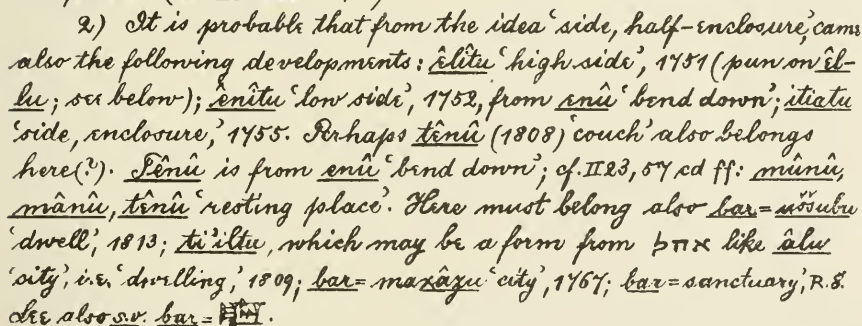 2) It is probable that from the idea 'side, half-enclosure,' came
also the following developments: êlîtu 'high side', 1751 (pun on êl-
lu; see below); ênîtu 'low side', 1752, from enû 'bend down'; itiatu
'side, enclosure,' 1755. Perhaps tênû (1808) 'couch' also belongs
here(?). Tênû is from enû 'bend down'; cf. II 23, 57 cd ff: mûnû,
mânû, tênû 'resting place'. Here must belong also bar = uššubu
'dwell', 1813; ti'iltu, which may be a form from אהל like âlu
'city', i.e. 'dwelling,' 1809; bar = maxâzu 'city', 1767; bar = sanctuary', R.S.
See also s.v. bar =